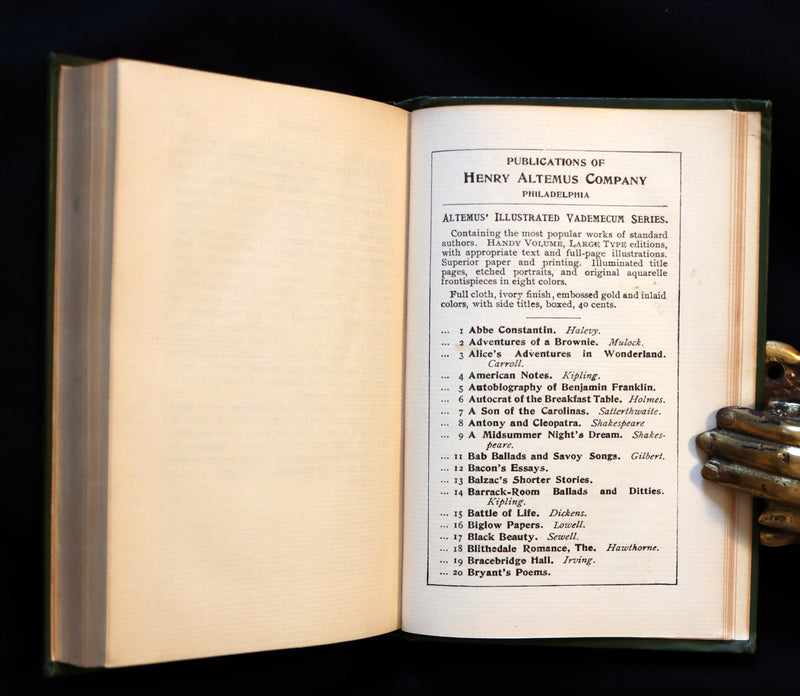 PUBLICATIONS OF
HENRY ALTEMUS COMPANY
PHILADELPHIA
ALTEMUS' ILLUSTRATED VADEMECUM SERIES.
Containing the most popular works of standard
authors. HANDY VOLUME, LARGE TYPE editions,
with appropriate text and full-page illustrations.
Superior paper and printing. Illuminated title
pages, etched portraits, and original aquarelle
frontispieces in eight colors.
Full cloth, ivory finish, embossed gold and inlaid
colors, with side titles, boxed, 40 cents.
... 1 Abbe Constantin. Halevy.
... 2 Adventures of a Brownie. Mulock.
... 3 Alice's Adventures in Wonderland.
Carroll.
... 4 American Notes. Kipling.
... 5 Autobiography of Benjamin Franklin.
... 6 Autocrat of the Breakfast Table. Holmes.
... 7 A Son of the Carolinas. Satterthwaite.
... 8 Antony and Cleopatra. Shakespeare
... 9 A Midsummer Night's Dream. Shakes-
peare.
... 11 Bab Ballads and Savoy Songs. Gilbert.
... 12 Bacon's Essays.
... 13 Balzac's Shorter Stories.
... 14 Barrack-Room Ballads and Ditties.
Kipling.
... 15 Battle of Life. Dickens.
... 16 Biglow Papers. Lowell.
... 17 Black Beauty. Sewell.
... 18 Blithedale Romance, The. Hawthorne.
... 19 Bracebridge Hall. Irving.
... 20 Bryant's Poems.